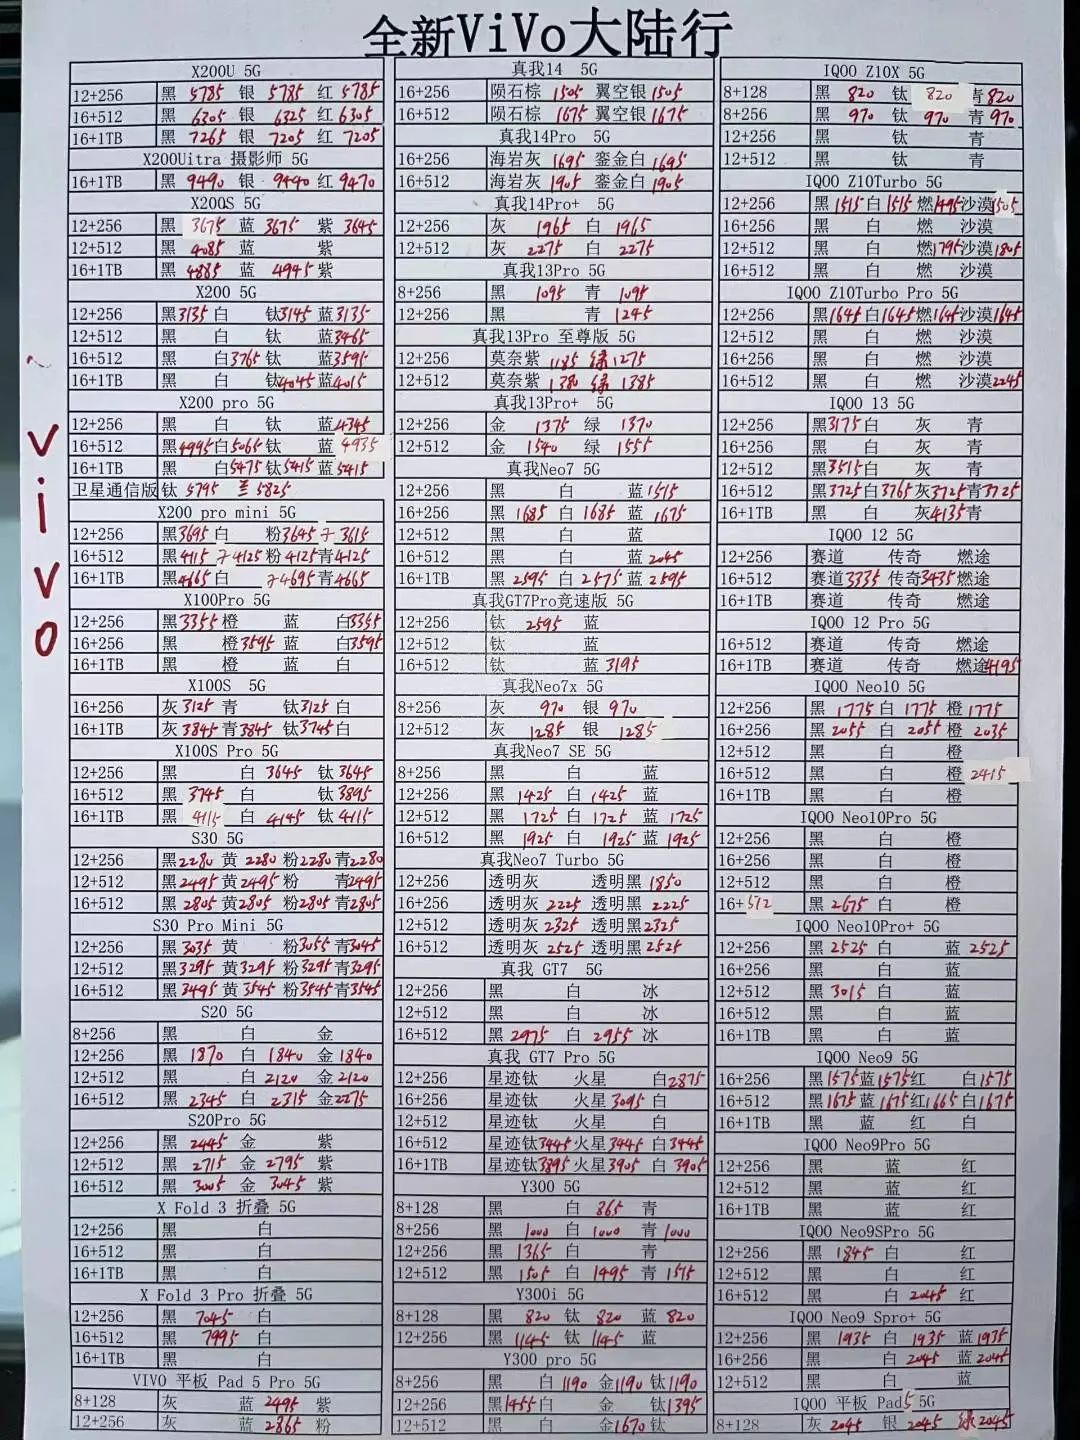 全新ViVo大陆行
ViVo
X200U 5G
12+256 黑 5785 银 5785 红 5785
16+512 黑 6305 银 6325 红 6305
16+1TB 黑 7265 银 7205 红 7205
X200Uitra 摄影师 5G
16+1TB 黑 9490 银 9440 红 9470
X200S 5G
12+256 黑 3675 蓝 3675 紫 3645
12+512 黑 4085 蓝 紫
16+1TB 黑 4885 蓝 4945 紫
X200 5G
12+256 黑3135 白 钛3145 蓝3135
12+512 黑 白 钛 蓝3465
16+512 黑 白3765 钛 蓝3595
16+1TB 黑 白 钛4045 蓝4015
X200 pro 5G
12+256 黑 白 钛 蓝4345
16+512 黑4995 白5065 钛 蓝 4935
16+1TB 黑 白5475 钛5415 蓝5415
卫星通信版 钛 5795 兰 5825
X200 pro mini 5G
12+256 黑3695 白 粉3645 3615
16+512 黑4115 4125 粉4125 青4125
16+1TB 黑4665 白 4695 青4665
X100Pro 5G
12+256 黑3355 橙 蓝 白3355
16+256 黑 橙3595 蓝 白3595
16+1TB 黑 橙 蓝 白
X100S 5G
16+256 灰 3125 青 钛3125 白
16+1TB 灰 3845 青 3845 钛3745 白
X100S Pro 5G
12+256 黑 白 3645 钛 3645
16+512 黑 3745 白 钛 3895
16+1TB 黑 4115 白 4145 钛 4115
S30 5G
12+256 黑2280 黄 2280 粉2280 青2280
12+512 黑2495 黄2495 粉 青2495
16+512 黑2805 黄2805 粉2805 青2805
S30 Pro Mini 5G
12+256 黑3035 黄 粉3055 青3045
12+512 黑3295 黄3295 粉 3295 青3295
16+512 黑3495 黄 3545 粉3545 青3545
S20 5G
8+256 黑 白 金
12+256 黑 1870 白 1840 金 1840
12+512 黑 白 2120 金 2120
16+512 黑 2345 白 2315 金2275
S20Pro 5G
12+256 黑 2445 金 紫
12+512 黑 2715 金 2795 紫
16+512 黑 3005 金 3045 紫
X Fold 3 折叠 5G
12+256 黑 白
16+512 黑 白
16+1TB 黑 白
X Fold 3 Pro 折叠 5G
12+256 黑 7045 白
16+512 黑 7995 白
16+1TB 黑 白
VIVO 平板 Pad 5 Pro 5G
8+128 灰 蓝 2495 紫
12+256 灰 蓝 2865 粉
真我14 5G
16+256 陨石棕 1505 翼空银 1505
16+512 陨石棕 1675 翼空银 1675
真我14Pro 5G
16+256 海岩灰 1695 銮金白 1695
16+512 海岩灰 1905 銮金白 1905
真我14Pro+ 5G
12+256 灰 1965 白 1965
12+512 灰 2275 白 2275
真我13Pro 5G
8+256 黑 1095 青 1095
12+256 黑 青 1245
真我13Pro 至尊版 5G
12+256 莫奈紫 1185 绿 1275
12+512 莫奈紫 1380 绿 1385
真我13Pro+ 5G
12+256 金 1375 绿 1370
12+512 金 1540 绿 1555
真我Neo7 5G
12+256 黑 白 蓝1515
16+256 黑 1685 白 1685 蓝 1675
12+512 黑 白 蓝
16+512 黑 白 蓝 2045
16+1TB 黑 2595 白 2575 蓝 2595
真我GT7Pro竞速版 5G
12+256 钛 2595 蓝
12+512 钛 蓝
16+512 钛 蓝 3195
真我Neo7x 5G
8+256 灰 970 银 970
12+512 灰 1285 银 1285
真我Neo7 SE 5G
8+256 黑 白 蓝
12+256 黑 1425 白 1425 蓝
12+512 黑 1725 白 1725 蓝 1725
16+512 黑 1925 白 1925 蓝 1925
真我Neo7 Turbo 5G
12+256 透明灰 透明黑 1850
16+256 透明灰 2225 透明黑 2225
12+512 透明灰 2325 透明黑2325
16+512 透明灰 2525 透明黑2525
真我 GT7 5G
12+256 黑 白 冰
12+512 黑 白 冰
16+512 黑 2975 白 2955 冰
真我 GT7 Pro 5G
12+256 星迹钛 火星 白2875
16+256 星迹钛 火星 3095 白
12+512 星迹钛 火星 白
16+512 星迹钛3445 火星 3445 白3445
16+1TB 星迹钛3895 火星 3905 白 3905
Y300 5G
8+128 黑 白 865 青
8+256 黑 1000 白 1000 青 1000
12+256 黑 1365 白 青
12+512 黑 1505 白 1495 青 1515
Y300i 5G
8+128 黑 820 钛 820 蓝 820
12+256 黑 1145 钛 1145 蓝
Y300 pro 5G
8+256 黑 白 1190 金1190 钛1190
12+256 黑1455 白 金 钛1395
12+512 黑 白 金1670 钛
IQOO Z10X 5G
8+128 黑 820 钛 820 青820
8+256 黑 970 钛 970 青 970
12+256 黑 钛 青
12+512 黑 钛 青
IQOO Z10Turbo 5G
12+256 黑1515 白1515 燃1495 沙漠1505
16+256 黑 白 燃 沙漠
12+512 黑 白 燃1795 沙漠1805
16+512 黑 白 燃 沙漠
IQOO Z10Turbo Pro 5G
12+256 黑1645 白1645 燃1645 沙漠1645
12+512 黑 白 燃 沙漠
16+256 黑 白 燃 沙漠
16+512 黑 白 燃 沙漠2245
IQOO 13 5G
12+256 黑3175 白 灰 青
16+256 黑 白 灰 青
12+512 黑3515 白 灰 青
16+512 黑3725 白3765 灰3725 青3725
16+1TB 黑 白 灰4135 青
IQOO 12 5G
12+256 赛道 传奇 燃途
16+512 赛道 3335 传奇3435 燃途
16+1TB 赛道 传奇 燃途
IQOO 12 Pro 5G
16+512 赛道 传奇 燃途
16+1TB 赛道 传奇 燃途4195
IQOO Neo10 5G
12+256 黑 1775 白 1775 橙 1775
16+256 黑 2055 白 2055 橙 2035
12+512 黑 白 橙
16+512 黑 白 橙 2415
16+1TB 黑 白 橙
IQOO Neo10Pro 5G
12+256 黑 白 橙
16+256 黑 白 橙
12+512 黑 白 橙
16+512 黑 2675 白 橙
IQOO Neo10Pro+ 5G
12+256 黑 2525 白 蓝 2525
16+256 黑 白 蓝
12+512 黑 3015 白 蓝
16+512 黑 白 蓝
16+1TB 黑 白 蓝
IQOO Neo9 5G
16+256 黑1575 蓝1575 红 白1575
16+512 黑1675 蓝1675 红1665 白1675
16+1TB 黑 蓝 红 白
IQOO Neo9Pro 5G
12+256 黑 蓝 红
12+512 黑 蓝 红
16+1TB 黑 蓝 红
IQOO Neo9SPro 5G
12+256 黑 1845 白 红
12+512 黑 白 红
16+512 黑 白 2045 红
IQOO Neo9 Spro+ 5G
12+256 黑 1935 白 1935 蓝1935
16+256 黑 白 2045 蓝2045
12+512 黑 白 蓝
IQOO 平板 Pad5 5G
8+128 灰 2045 银 2045 绿2045